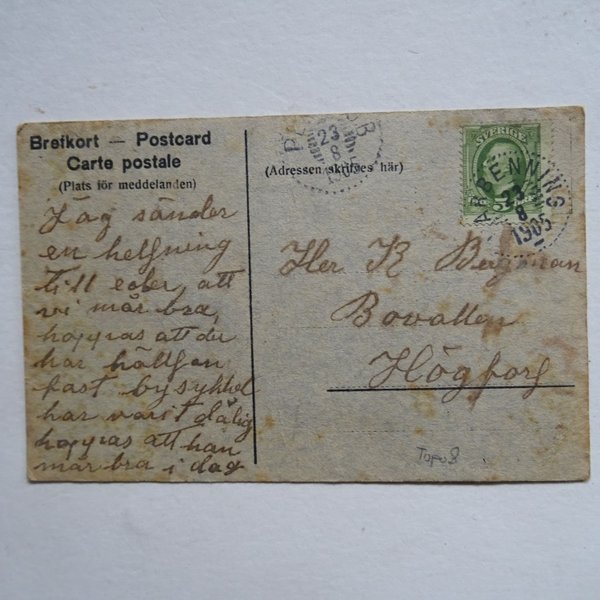 Brefkort — Postcard
Carte postale
(Plats för meddelanden)
(Adressen skrifves här)
23
8
SVERIGE
5
BENNING
23
8
1905
Jag sänder
en helsning
till eder, att
vi mår bra,
hoppas att du
har
har varit dålig
hoppas att han
mår bra i dag
Her K Bergman
Bovallen
Högforg
Topo 8